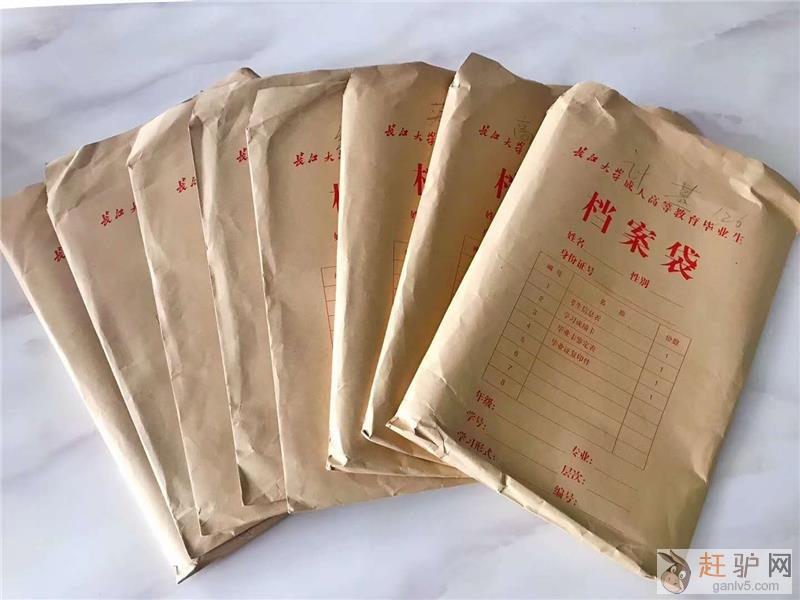 长
长江大
长
长江
长江大
档
长江大学
档
长江大学
高
档
计 基 126
长江大学成人高等教育毕业生
档案袋
姓名 性别
身份证号
编号 名称 份数
1 考生信息表 1
2 学习成绩卡 1
3 毕业生鉴定表 1
4 毕业证复印件 1
5
6
7
8
年级: 专业:
学号: 层次:
学习形式: 编号:
赶驴网
ganlv5.com